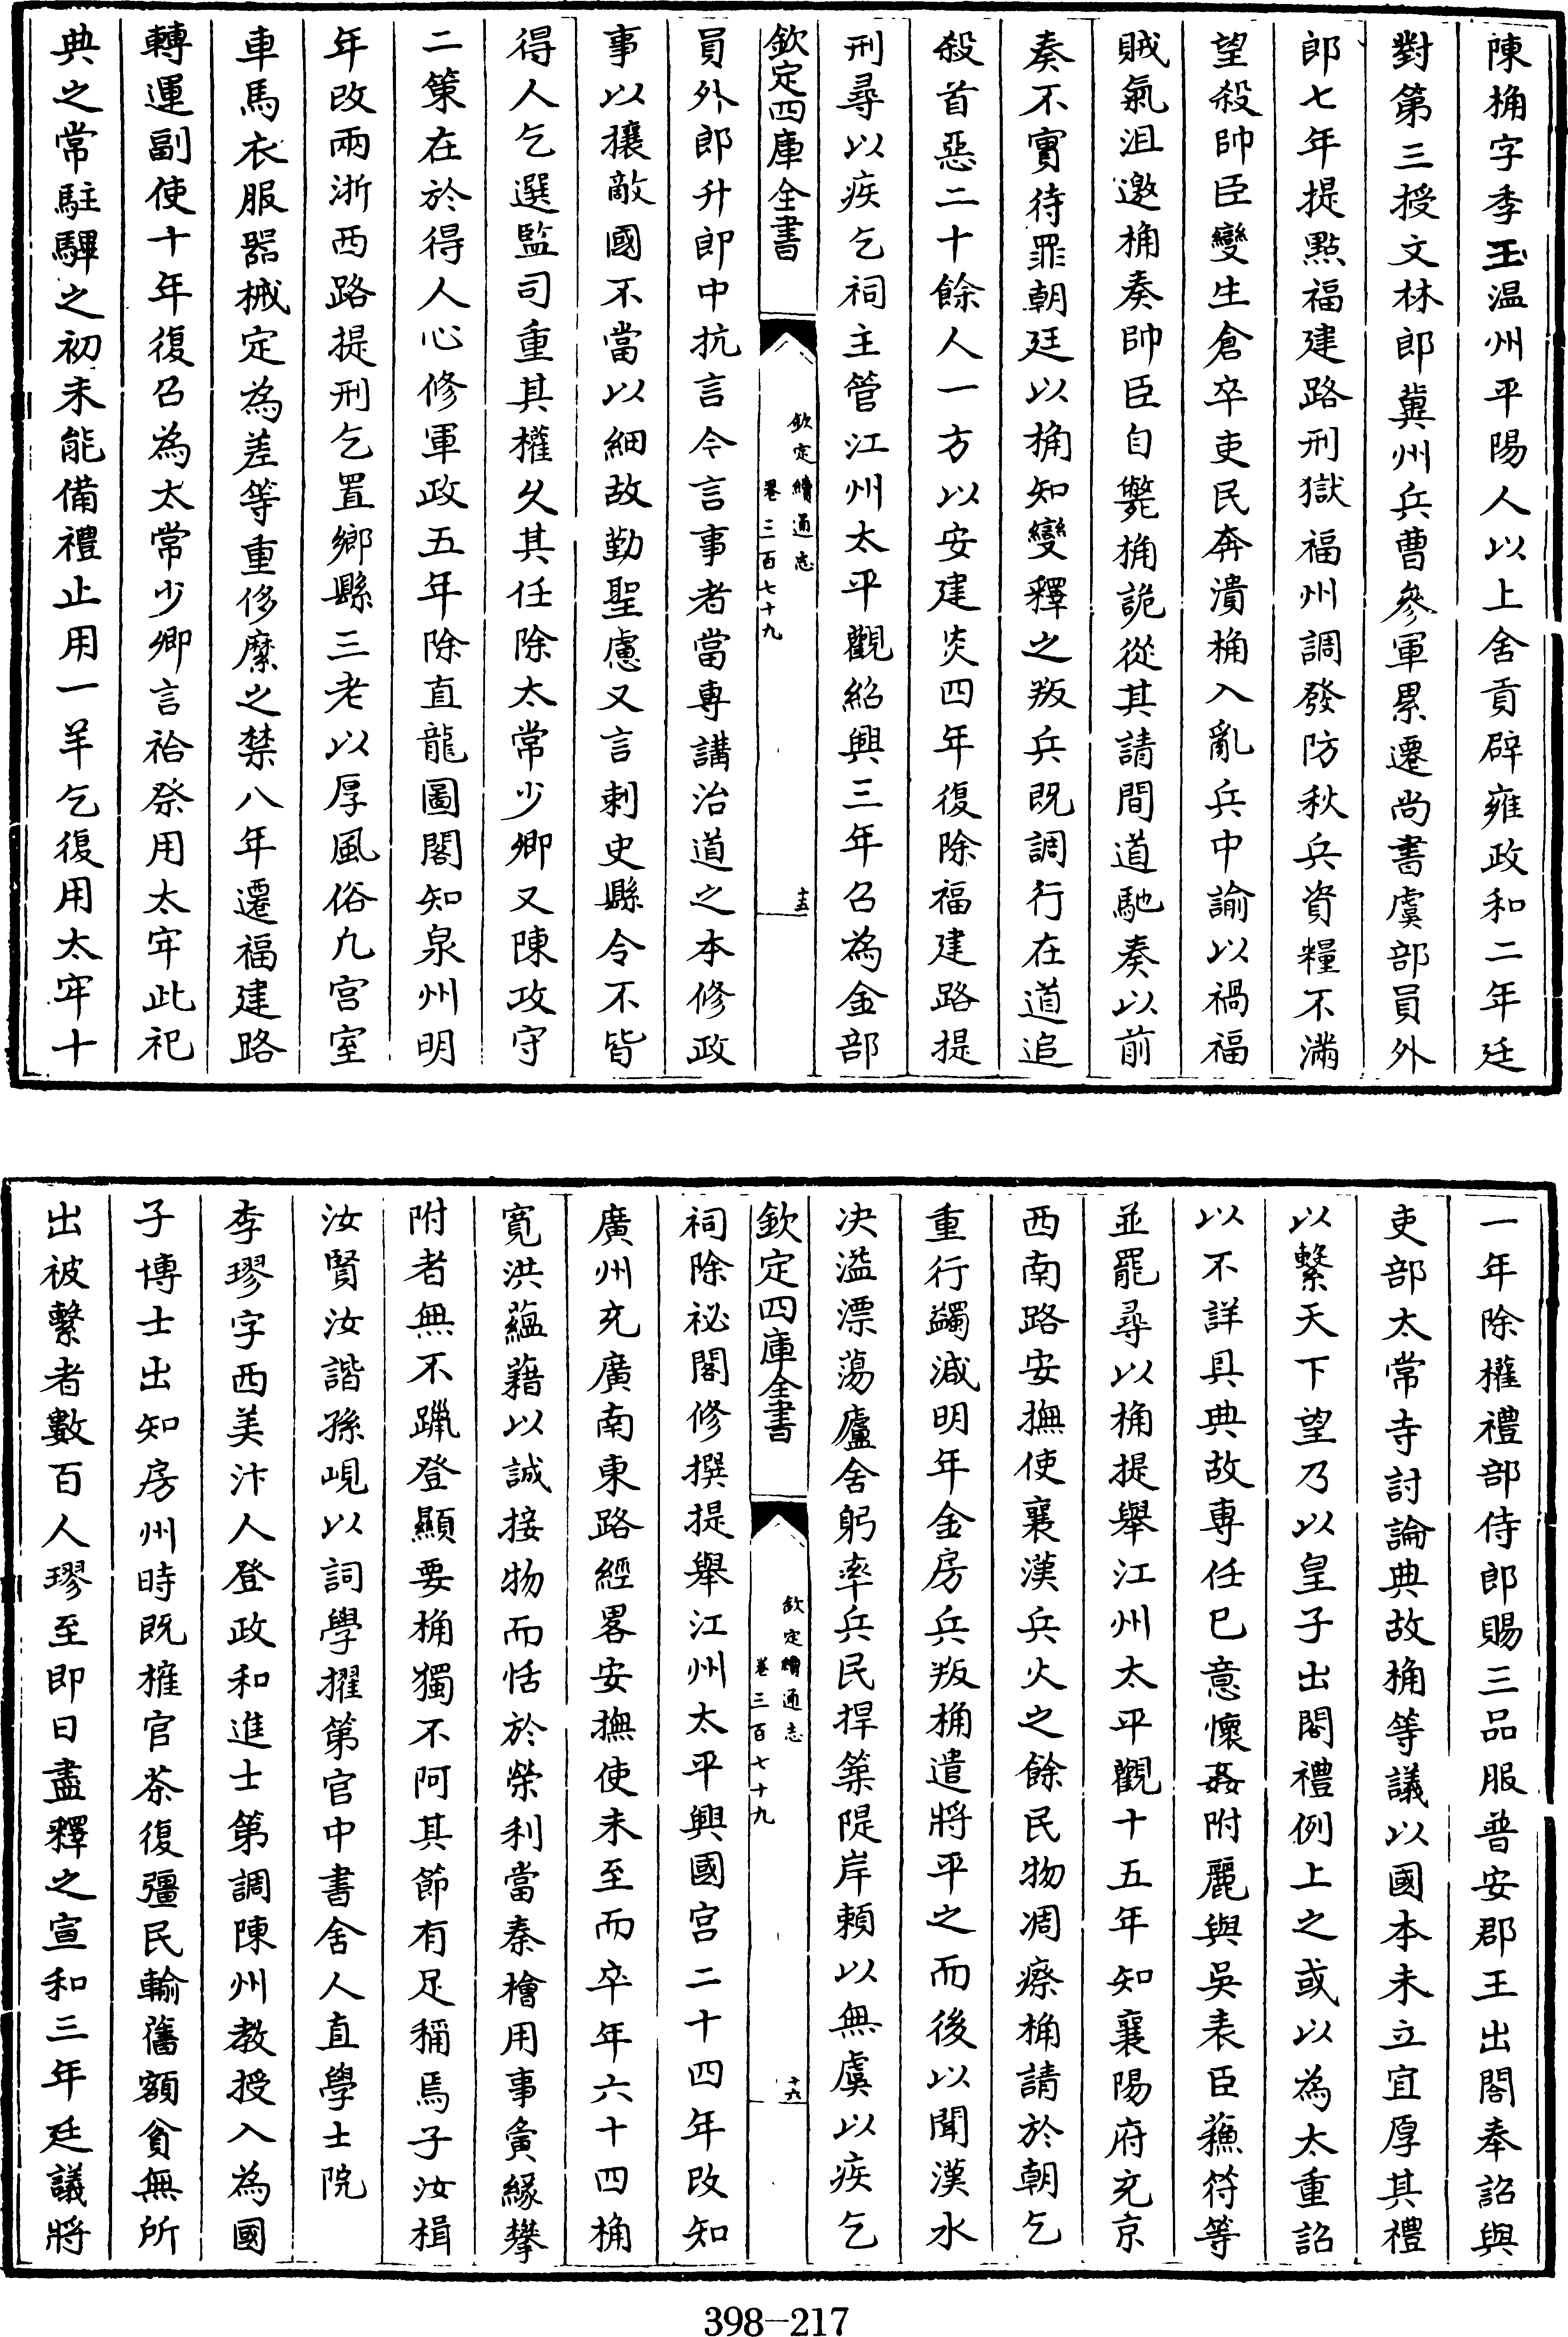 陳桷字季玉温州平陽人以上舍貢辟雍政和二年廷
對第三授文林郎冀州兵曹參軍累遷尚書虞部員外
郎七年提點福建路刑獄福州調發防秋兵資糧不滿
望殺帥臣變生倉卒吏民奔潰桷入亂兵中諭以禍福
賊氣沮邀桷奏帥臣自斃桷詭從其請間道馳奏以前
奏不實待罪朝廷以桷知變釋之叛兵既調行在道追
殺首惡二十餘人一方以安建炎四年復除福建路提
刑尋以疾乞祠主管江州太平觀紹興三年召為金部
欽定四庫全書
欽定續通志
卷三百七十九
十五
員外郎升郎中抗言今言事者當專講治道之本修政
事以攘敵國不當以細故勤聖慮又言刺史縣令不皆
得人乞選監司重其權久其任除太常少卿又陳攻守
二策在於得人心修軍政五年除直龍圖閣知泉州明
年改兩浙西路提刑乞置鄉縣三老以厚風俗九宫室
車馬衣服器械定為差等重侈縻之禁八年遷福建路
轉運副使十年復召為太常少卿言祫祭用太牢此祀
典之常駐驆之初未能備禮止用一羊乞復用太牢十
一年除權禮部侍郎賜三品服普安郡王出閣奉詔與
吏部太常寺討論典故桷等議以國本未立宜厚其禮
以繫天下望乃以皇子出閣禮例上之或以為太重詔
以不詳具典故專任已意懷姦附麗與吳表臣蘓符等
並罷尋以桷提舉江州太平觀十五年知襄陽府充京
西南路安撫使襄漢兵火之餘民物凋瘵桷請於朝乞
重行蠲減明年金房兵叛桷遣將平之而後以聞漢水
决溢漂蕩廬舍躬率兵民捍築隄岸賴以無虞以疾乞
欽定四庫全書
欽定續通志
卷三百七十九
十六
祠除祕閣修撰提舉江州太平興國宫二十四年改知
廣州充廣南東路經畧安撫使未至而卒年六十四桷
寛洪蘊藉以誠接物而恬於榮利當秦檜用事夤緣攀
附者無不躐登顯要桷獨不阿其節有足稱焉子汝楫
汝賢汝諧孫峴以詞學擢第官中書舍人直學士院
李璆字西美汴人登政和進士第調陳州教授入為國
子博士出知房州時既榷官茶復彊民輸舊額貧無所
出被繫者數百人璆至即日盡釋之宣和三年廷議將
398-217